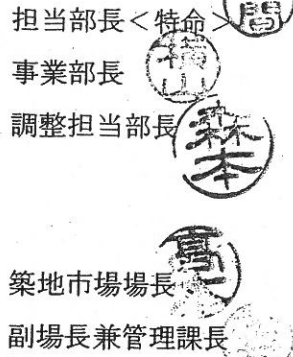 担当部長＜特命＞間
事業部長 横山
調整担当部長 森本
築地市場場長
副場長兼管理課長